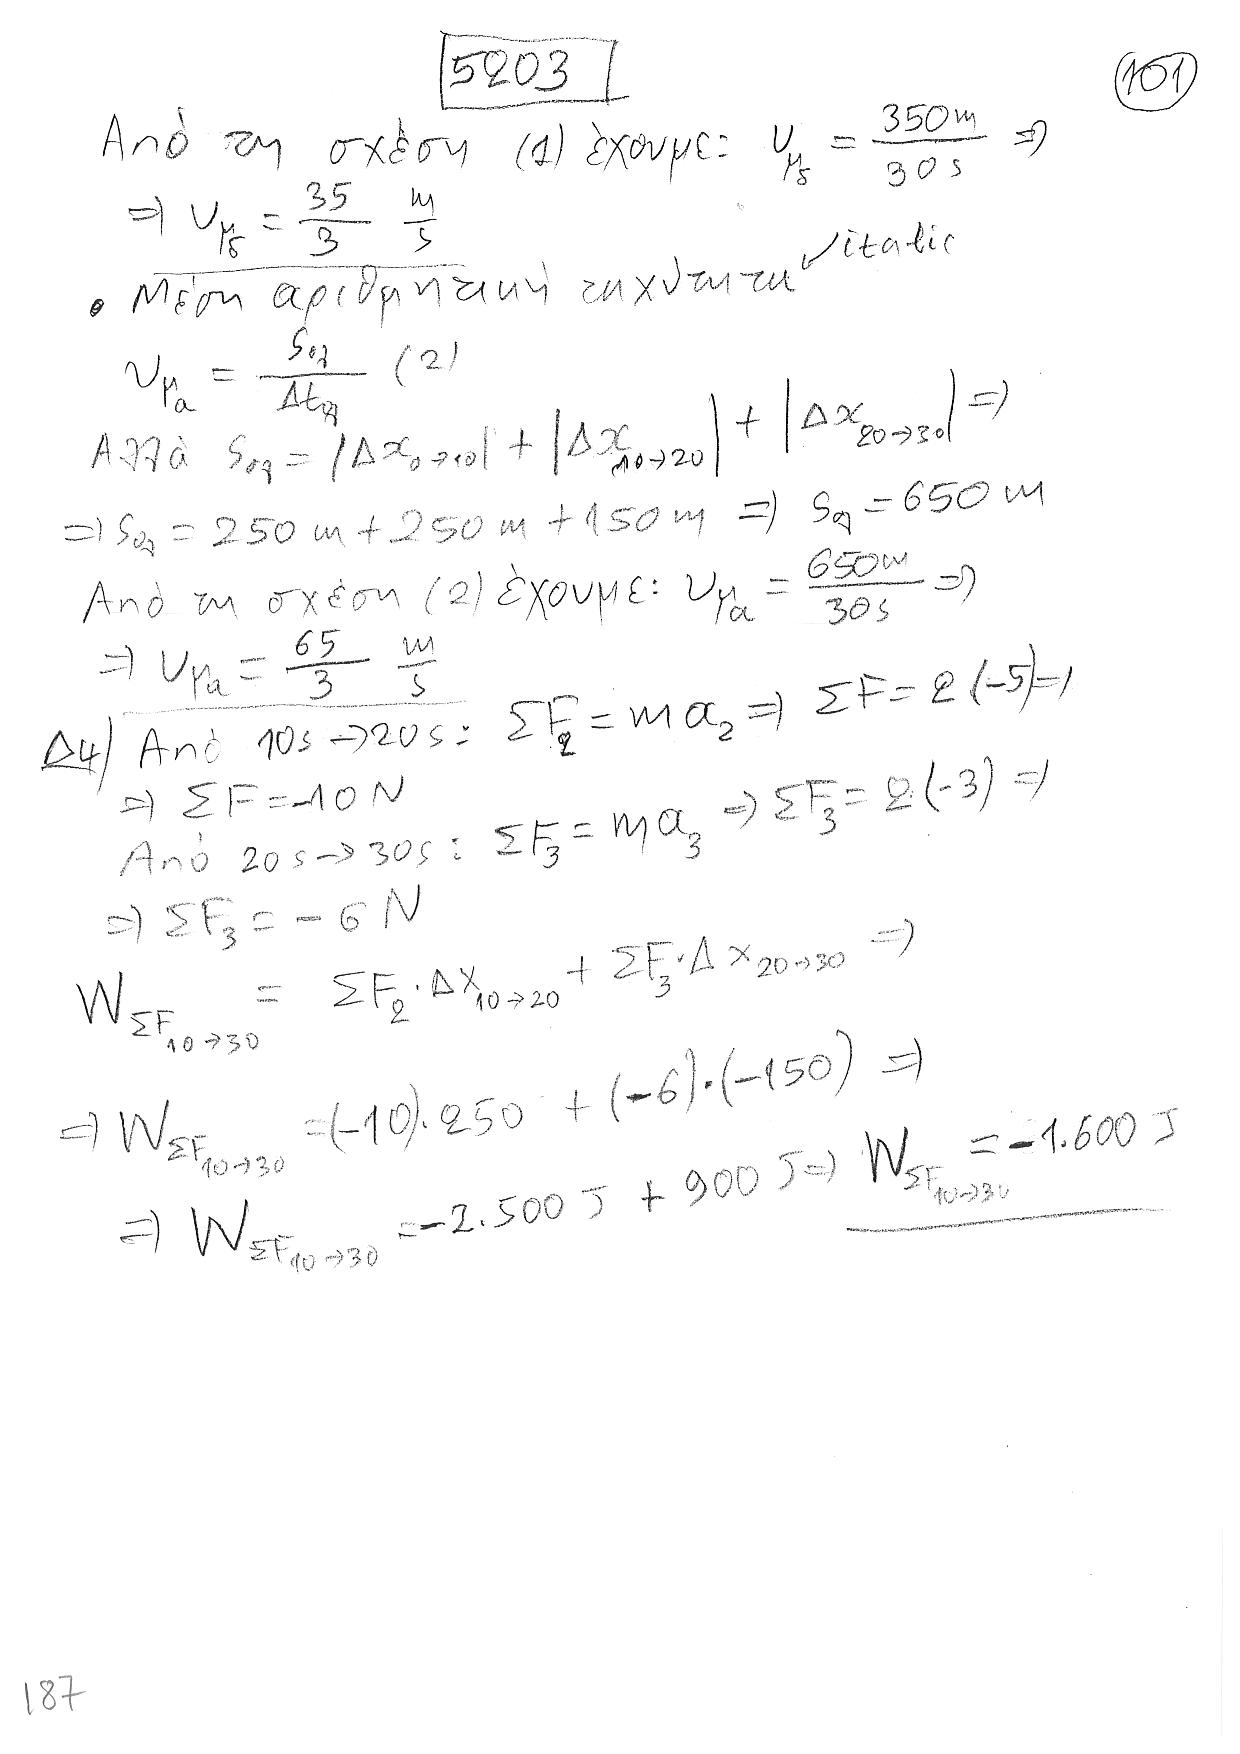 5203
101
Από τη σχέση (1) έχουμε: υ_μδ = 350m/30s ⇒
⇒ υ_μδ = 35/3 m/s
• Μέση αριθμητική ταχύτητα √italic
υ_μα = S_ολ/Δt_ολ (2)
Αλλά S_ολ = |Δx_0→10| + |Δx_10→20| + |Δx_20→30| ⇒
⇒ S_ολ = 250 m + 250 m + 150 m ⇒ S_ολ = 650 m
Από τη σχέση (2) έχουμε: υ_μα = 650m/30s ⇒
⇒ υ_μα = 65/3 m/s
Δ4) Από 10s → 20s: ΣF_2 = m α_2 ⇒ ΣF = 2 (-5) ⇒
⇒ ΣF = -10 N
Από 20s → 30s: ΣF_3 = m α_3 ⇒ ΣF_3 = 2 (-3) ⇒
⇒ ΣF_3 = -6 N
W_ΣF_10→30 = ΣF_2 · Δx_10→20 + ΣF_3 · Δx_20→30 ⇒
⇒ W_ΣF_10→30 = (-10) · 250 + (-6) · (-150) ⇒
⇒ W_ΣF_10→30 = -2.500 J + 900 J ⇒ W_ΣF_10→30 = -1.600 J
187